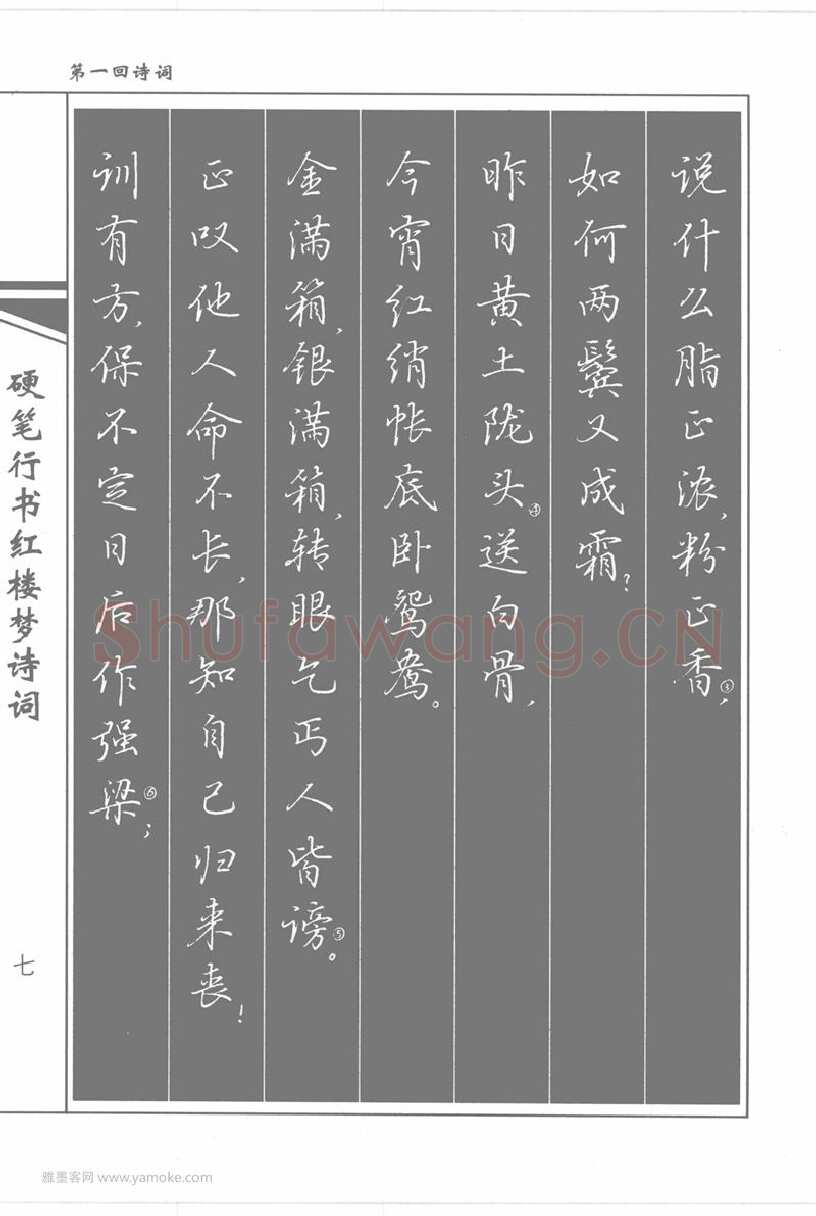 第一回诗词
说什么脂正浓,粉正香③,
如何两鬓又成霜?
昨日黄土陇头④送白骨,
今宵红绡帐底卧鸳鸯。
金满箱,银满箱,转眼乞丐人皆谤⑤。
正叹他人命不长,那知自己归来丧!
训有方,保不定日后作强梁⑥;
硬笔行书红楼梦诗词
七
Shufawang.CN
雅墨客网 www.yamoke.com